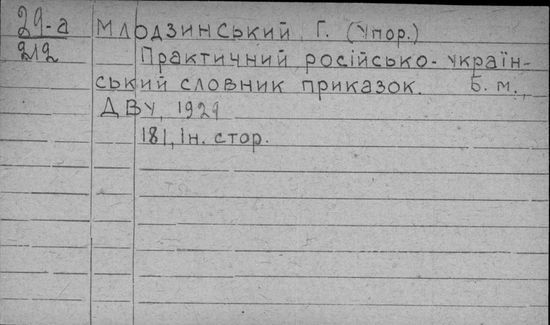 29-а Млодзинський, Г. (Упор.)
212 Практичний російсько-україн-
ський словник приказок. Б. м.,
ДВУ, 1929
181, Ін. стор.